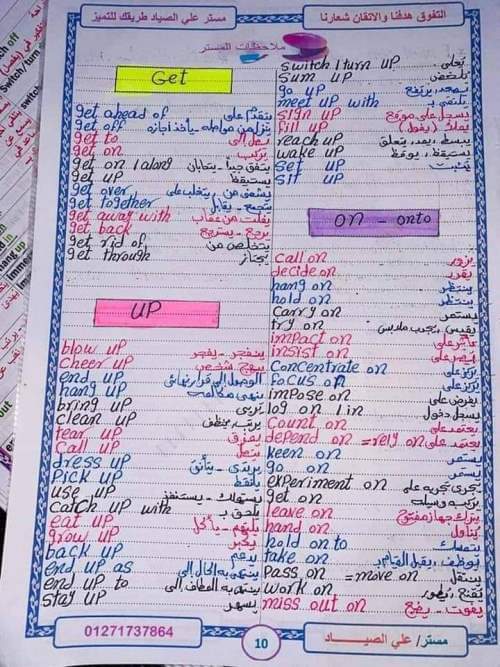 التفوق هدفنا والاتقان شعارنا
مستر علي الصياد طريقك للتميز
ملاحظات المستر
Get
get ahead of يتقدم على
get off ينزل من مواصلة - يأخذ اجازه
get to يصل إلى
get on يركب
get on / along يتفق جيداً - يتحابان
get up يستيقظ
get over يشفى من, يتغلب على
get together يتجمع - يقابل
get away with يفلت من عقاب
get back يرجع - يسترجع
get rid of يتخلص من
get through يجتاز
UP
blow up ينفجر - يفجر
cheer up يبهج شخص
end up الوصول إلى قرار نهائى
hang up ينهى مكالمه
bring up يربى
clean up يرتب, ينظف
tear up يمزق
call up يتصل
dress up يرتدى - يتأنق
Pick up يلتقط
use up يستهلك - يستنفز
catch up with يلحق بـ
eat up يلتهم - يأكل
grow up يكبر
back up يدعم
end up as ينتهى به الحال إلى
end up to ينتهى به المطاف إلى
stay up يسهر
switch / turn up يعلى
sum up يلخص
go up يصعد, يرتفع
meet up with يلتقى بـ
sign up يسجل على موقع
fill up يملأ (يفول)
reach up يبسط, يمد, يتعلق
wake up يستيقظ, يوقظ
set up يثبت
sit up
on - onto
call on يزور
decide on يقرر
hang on ينتظر
hold on ينتظر
carry on يستمر
try on يقيس, يجرب ملابس
impact on
insist on يصر على
concentrate on يركز على
focus on يركز على
impose on يفرض على
log on / in يسجل دخول
count on يعتمد على
depend on = rely on يعتمد على
keen on
go on يستمر
experiment on يجرى تجربه على
get on يركب وسيله
leave on يترك جهاز مفتوح
hand on يناول
hold on to يتمسك
take on يوظف, يقبل القيام بـ
pass on = move on ينتقل
work on يقنع, يطور
miss out on يفوت - يضيع
01271737864
10
مستر/ علي الصيــــاد